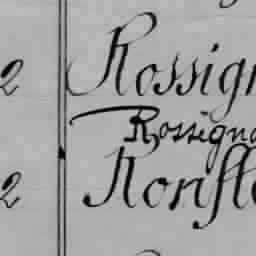 2 Rossign
Rossigno
2 Ronfle